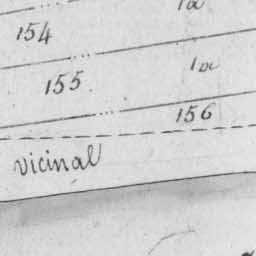 154
155
156
vicinal